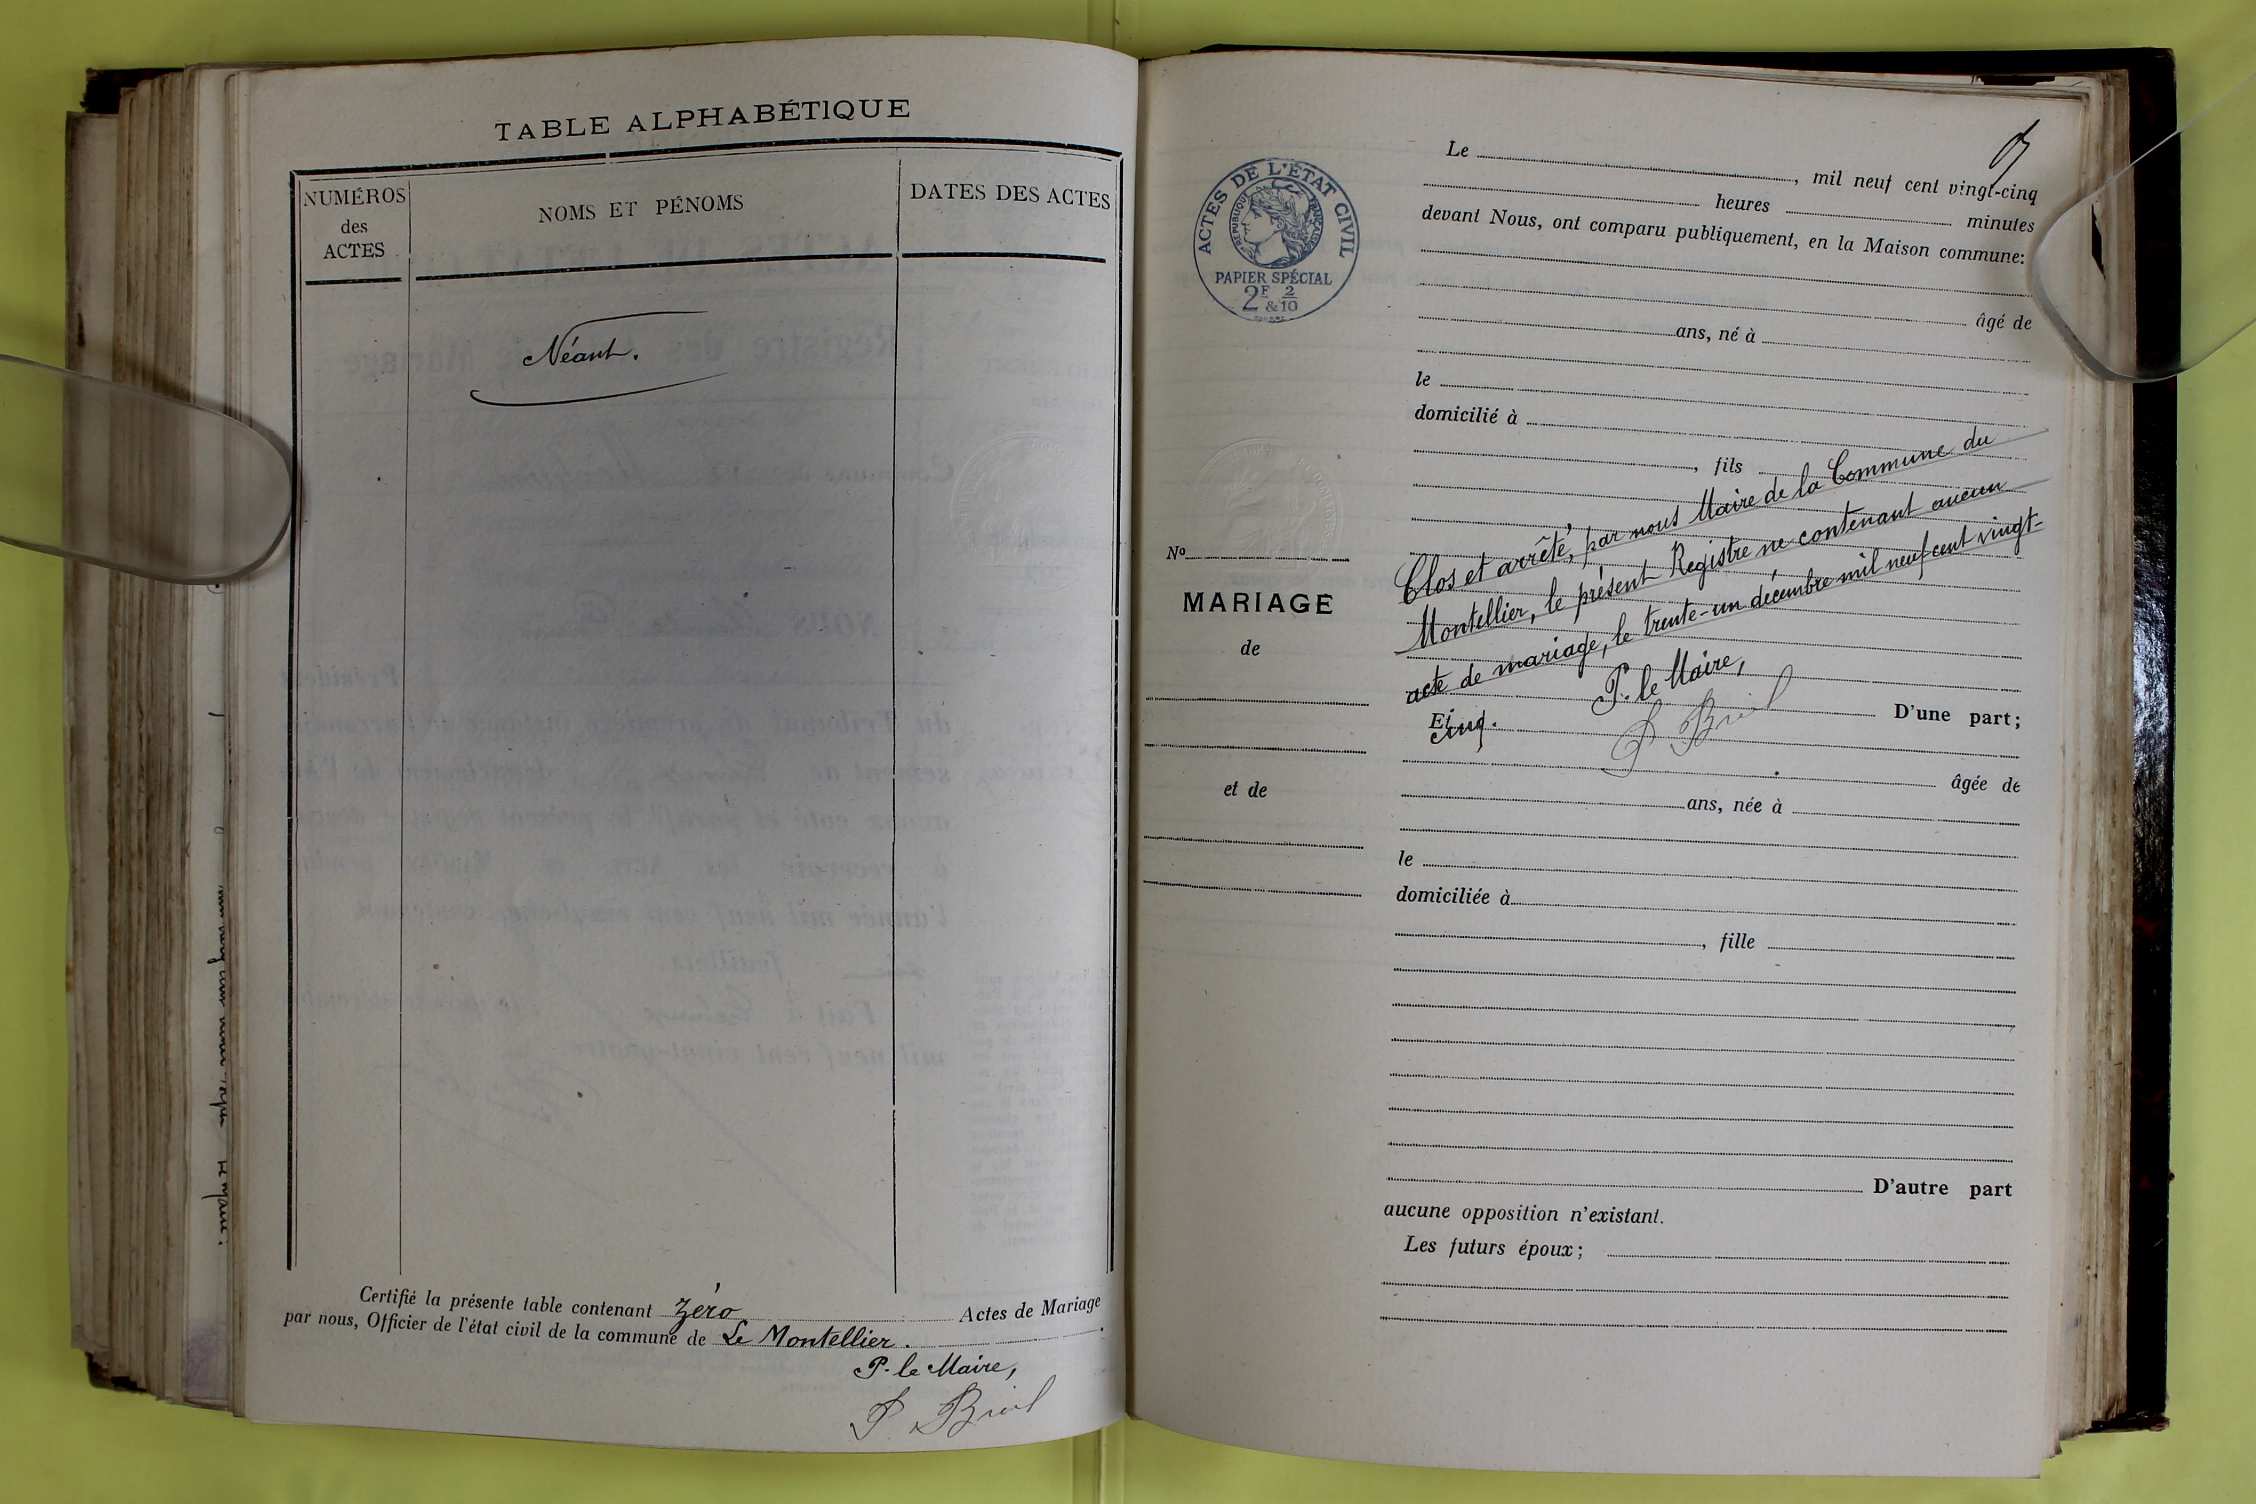 TABLE ALPHABÉTIQUE
NUMÉROS
des
ACTES
NOMS ET PÉNOMS
DATES DES ACTES
Néant.
Certifié la présente table contenant zéro Actes de Mariage
par nous, Officier de l'état civil de la commune de Le Montellier.
P. le Maire,
ACTES DE L'ÉTAT CIVIL
RÉPUBLIQUE FRANÇAISE
PAPIER SPÉCIAL
2F & 2/10
No
MARIAGE
de
et de
Le , mil neuf cent vingt-cinq
heures minutes
devant Nous, ont comparu publiquement, en la Maison commune:
âgé de
ans, né à
le
domicilié à
, fils
Clos et arrêté, par nous Maire de la Commune du
Montellier, le présent Registre ne contenant aucun
acte de mariage, le trente-un décembre mil neuf cent vingt-
cinq.
P. le Maire,
D'une part;
Et
âgée de
ans, née à
le
domiciliée à
, fille
D'autre part
aucune opposition n'existant.
Les futurs époux;